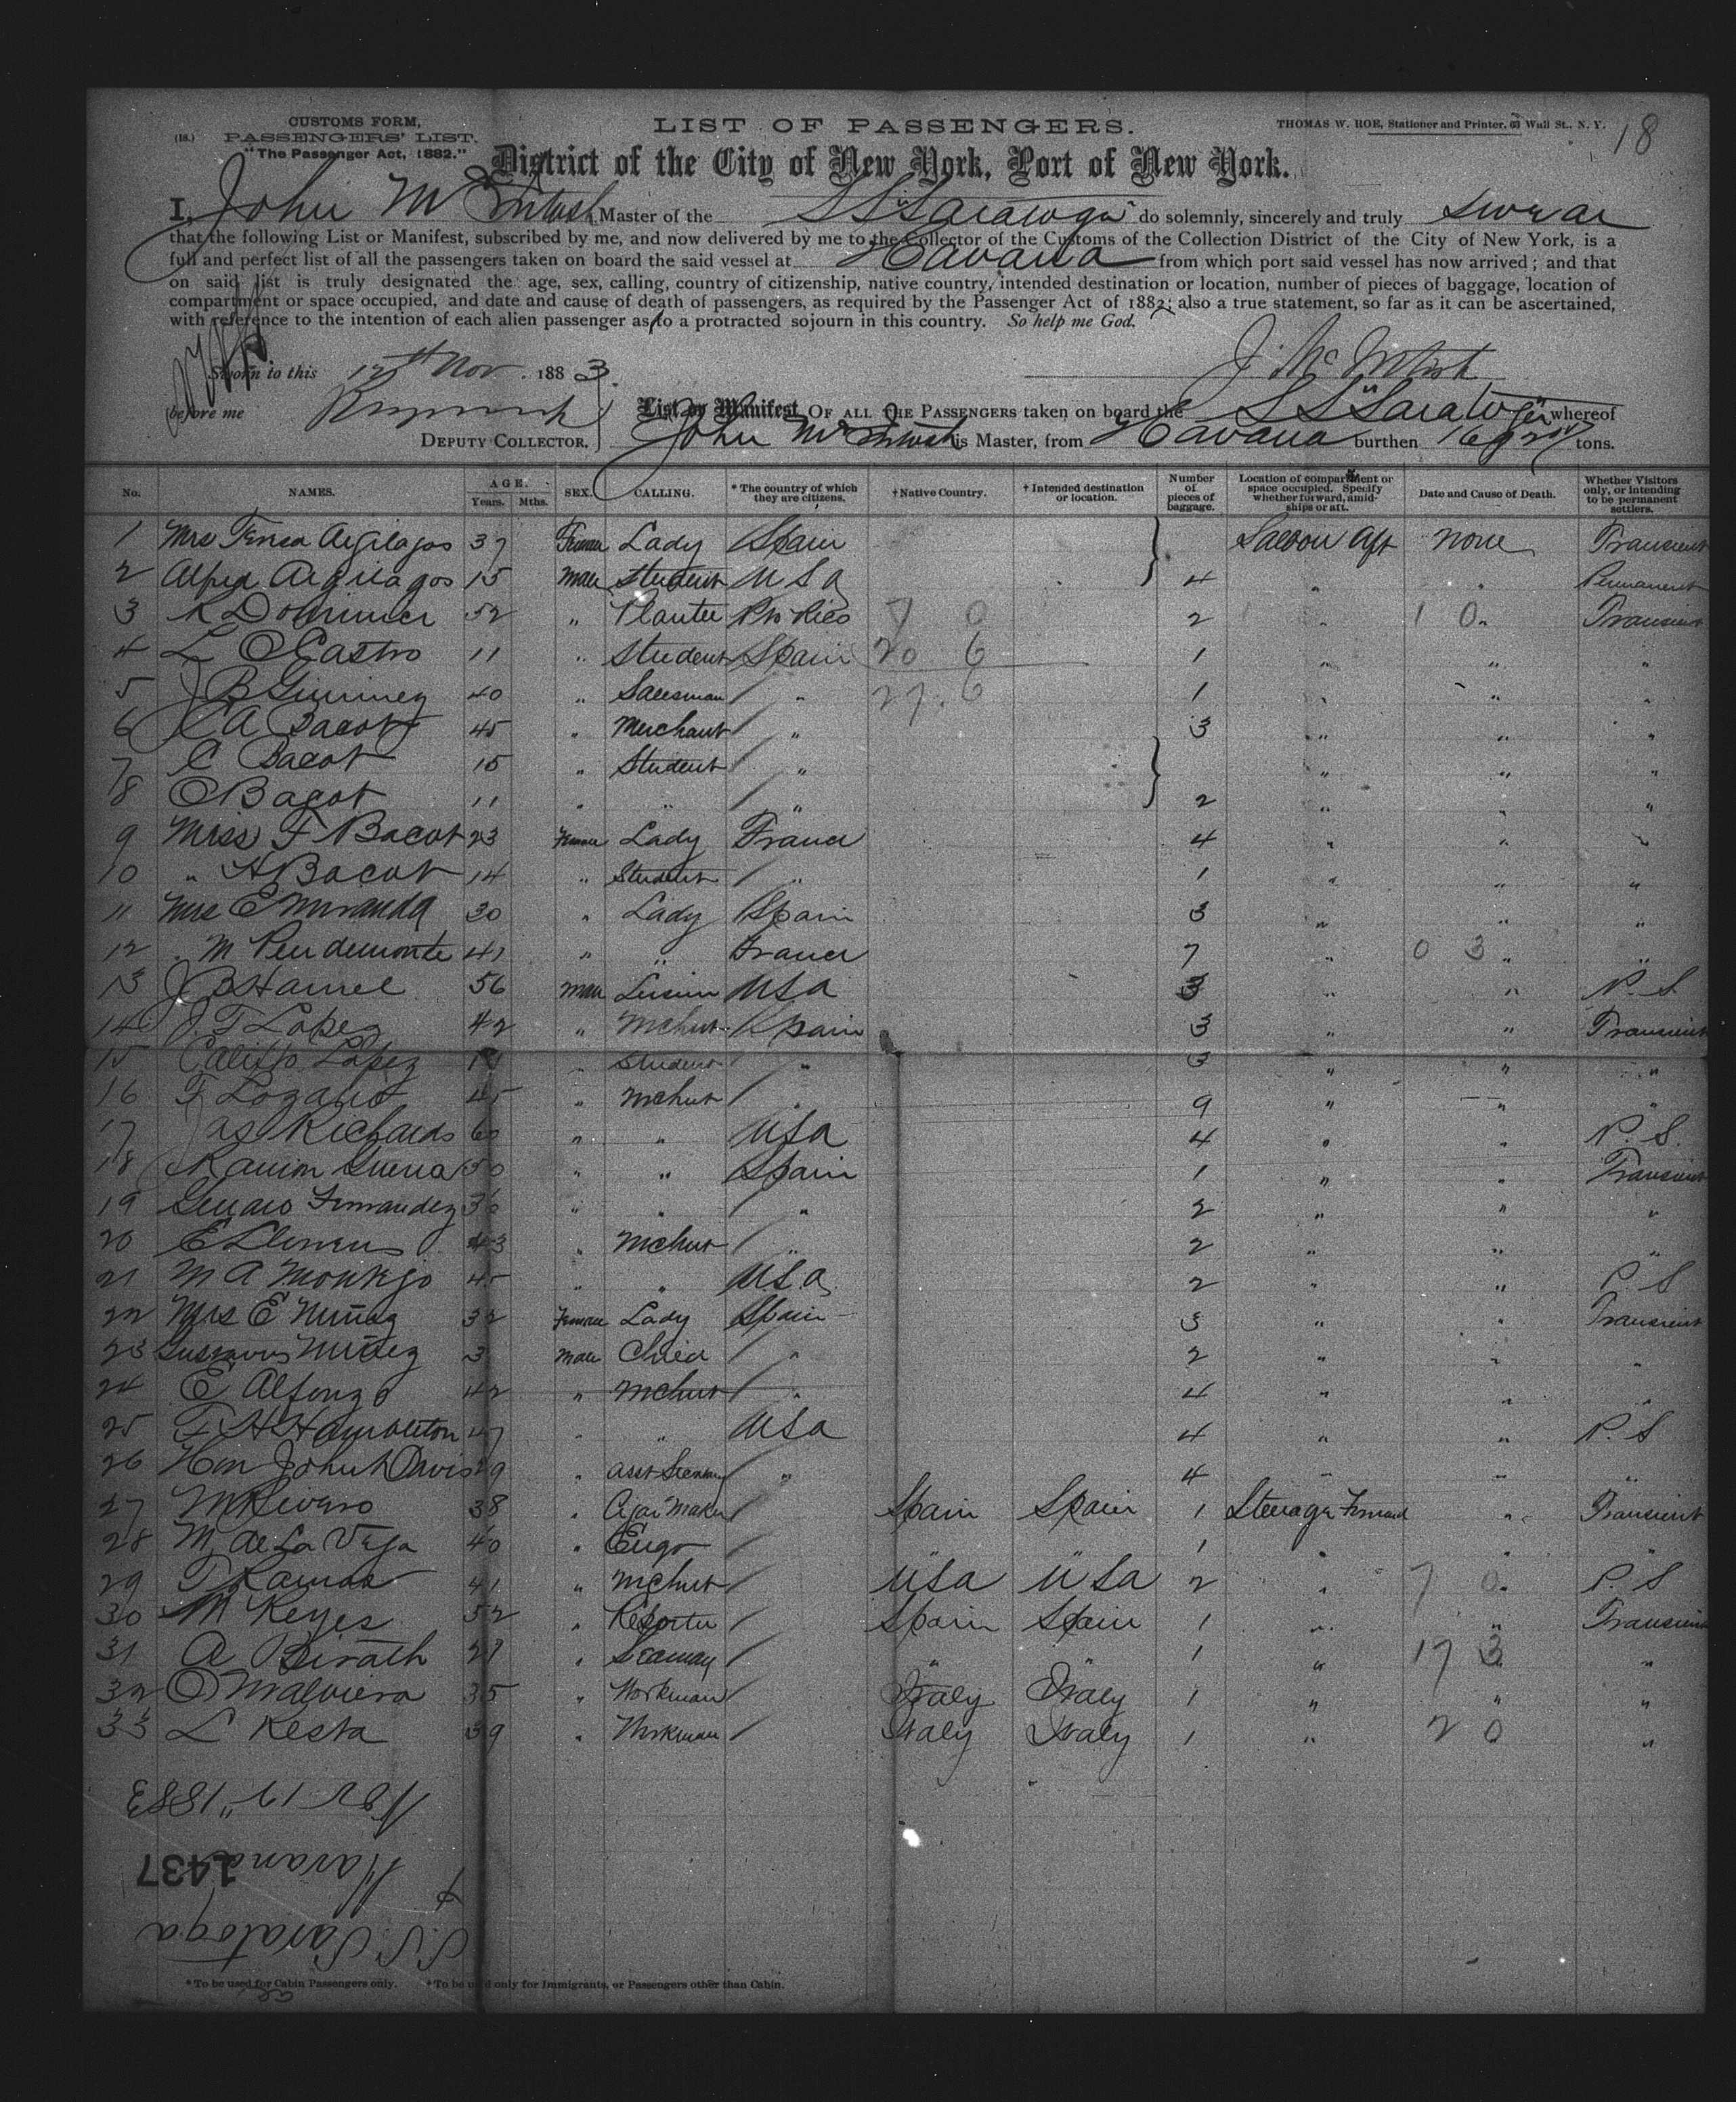 CUSTOMS FORM,
(18.) PASSENGERS' LIST.
"The Passenger Act, 1882."
LIST OF PASSENGERS.
THOMAS W. ROE, Stationer and Printer, 63 Wall St., N. Y.
18
District of the City of New York, Port of New York.
I, John McIntosh Master of the SS "Saratoga" do solemnly, sincerely and truly swear
that the following List or Manifest, subscribed by me, and now delivered by me to the Collector of the Customs of the Collection District of the City of New York, is a
full and perfect list of all the passengers taken on board the said vessel at Havana from which port said vessel has now arrived; and that
on said list is truly designated the age, sex, calling, country of citizenship, native country, intended destination or location, number of pieces of baggage, location of
compartment or space occupied, and date and cause of death of passengers, as required by the Passenger Act of 1882; also a true statement, so far as it can be ascertained,
with reference to the intention of each alien passenger as to a protracted sojourn in this country. So help me God.
J. McIntosh
Sworn to this Nov. 1883
before me
DEPUTY COLLECTOR.
List or Manifest OF ALL THE PASSENGERS taken on board the SS "Saratoga" whereof
John McIntosh is Master, from Havana burthen tons.
No. NAMES. AGE. Years. Mths. SEX. CALLING. * The country of which they are citizens. † Native Country. † Intended destination or location. Number of pieces of baggage. Location of compartment or space occupied. Specify whether forward, amidships or aft. Date and Cause of Death. Whether Visitors only, or intending to be permanent settlers.
1 Mrs Teresa Argilagos 37 Female Lady Spain Saloon Aft none Transient
2 Alfred Argilagos 15 Male Student USA 4 " " Permanent
3 52 " Planter 7 0 2 " 10 " Transient
4 L C Castro 11 " Student Spain 20 6 1 " " "
5 J B 40 " Salesman " 27.6 1 " " "
6 A Bacot 45 " Merchant " 3 " " "
7 C Bacot 15 " Student " " " "
8 E Bacot 11 " " " 2 " " "
9 Miss F Bacot 23 Female Lady France 4 " " "
10 " H Bacot 14 " Student " 1 " " "
11 Mrs E Miranda 30 " Lady Spain 3 " " "
12 " M 41 " " France 7 " 0 3 " "
13 J B Hamel 56 Male USA 3 " " P. S
14 J. F Lopez 42 " Mchnt Spain 3 " " Transient
15 Calisto Lopez " Student " 3 " " "
16 F Lozano 45 " Mchnt " 9 " " "
17 Jas Richards 60 " " USA 4 " " P. S.
18 Ramon Guerra 50 " " Spain 1 " " Transient
19 Genaro Fernandez 36 " " " 2 " " "
20 E 43 " Mchnt " 2 " " "
21 M A Montejo 45 " " USA 2 " " P. S
22 Mrs E Nuñez 32 Female Lady Spain 3 " " Transient
23 Gustavus Nuñez 3 Male Child " 2 " " "
24 E Alfonzo 42 " Mchnt " 4 " " "
25 F H Hambleton 47 " " USA 4 " " P. S
26 Hon John Davis 29 " Asst Secretary " 4 " " "
27 M Rivero 38 " Cigar Maker Spain Spain 1 Steerage Forward " Transient
28 M de La Vega 40 " Engr " " 1 " " "
29 T Ramos 41 " Mchnt USA USA 2 " 7 0 " P. S
30 M Reyes 52 " Reporter Spain Spain 1 " " Transient
31 A 27 " Seaman " " 1 " 17 3 "
32 35 " Workman Italy Italy 1 " " "
33 L Resta 39 " Workman Italy Italy 1 " 2 0 "
Nov 12" 1883
1437
Havana
S.S. Saratoga
* To be used for Cabin Passengers only. † To be used only for Immigrants, or Passengers other than Cabin.